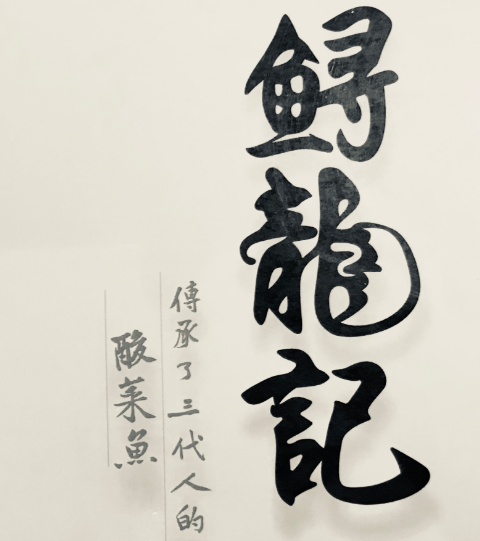 鲟龍記
傳承了三代人的
酸菜魚